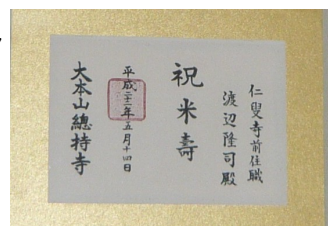 仁叟寺前住職
渡辺隆司殿
祝米壽
平成二十二年五月十四日
大本山總持寺